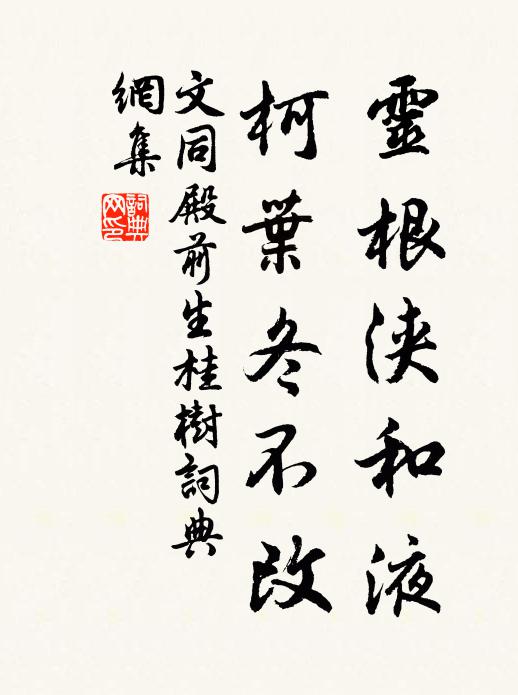 靈根浹和液
柯葉冬不改
文同殿前生桂樹詞典
網集
詞典網印